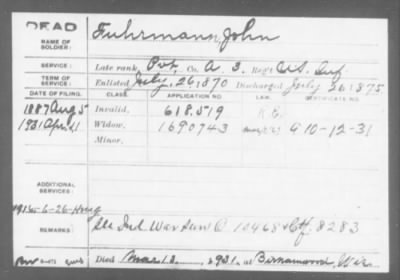 DEAD
Fuhrmann, John
NAME OF SOLDIER:
SERVICE: Late rank, Pvt, Co. A 3, Reg't U.S. Inf
TERM OF SERVICE: Enlisted July, 26, 1870 Discharged July 26, 1875
DATE OF FILING. CLASS. APPLICATION NO. LAW. CERTIFICATE NO.
1887 Aug 5 Invalid, 618.519
1931 Apr 11 Widow, 1690743 G 10-12-31
Minor,
ADDITIONAL SERVICES:
1916-6-26
REMARKS: Ind War Surv C 10468 Ctf. 8283
Died Mar 13, 1931, at Birnamwood, Wis